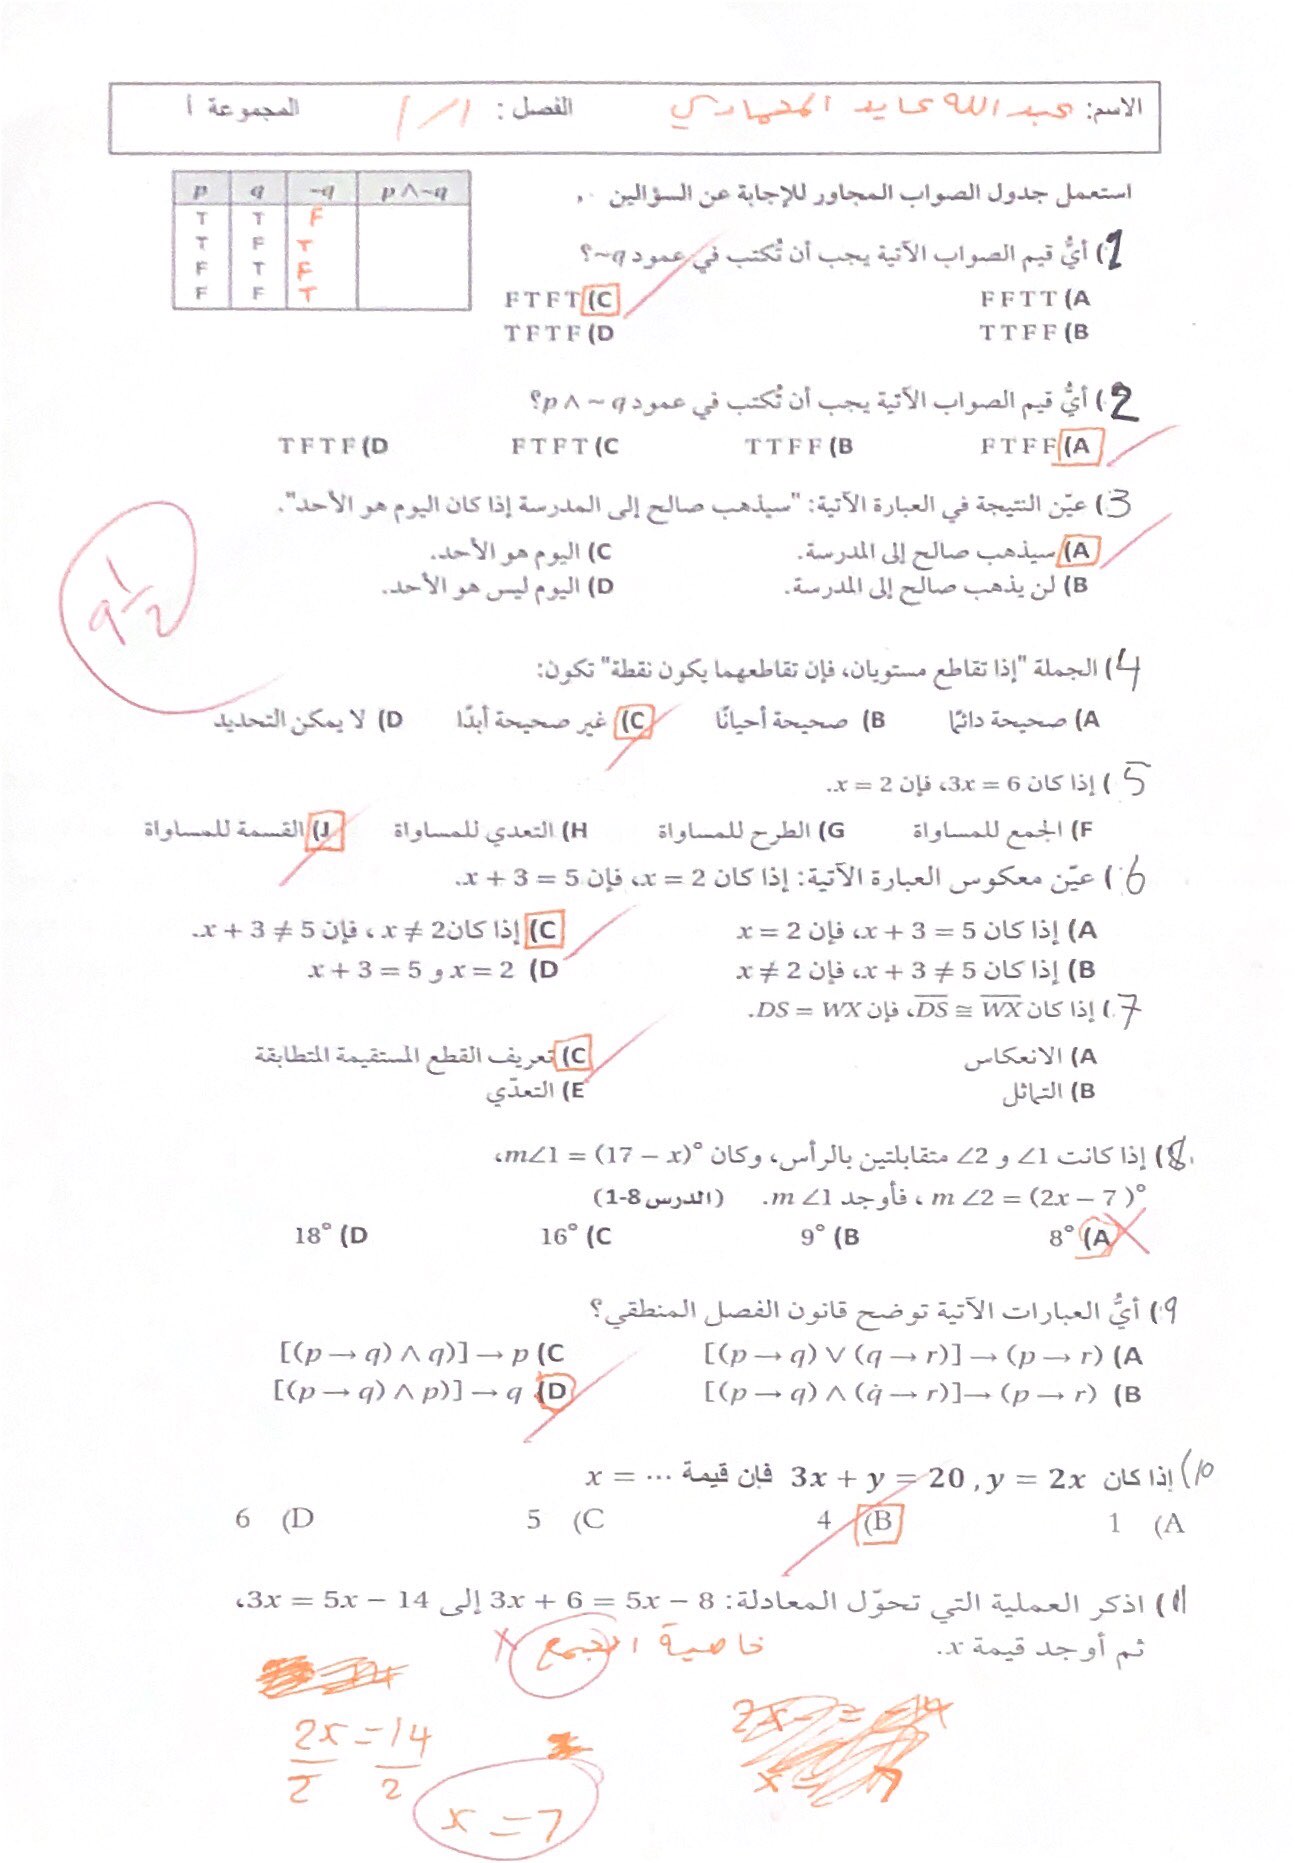 الاسم: عبد الله عايد الفصل : 1/1 المجموعة أ
استعمل جدول الصواب المجاور للإجابة عن السؤالين
p q ~q p ∧ ~q
T T F
T F T
F T F
F F T
1) أيُّ قيم الصواب الآتية يجب أن تُكتب في عمود q~؟
A) F F T T C) F T F T
B) T T F F D) T F T F
2) أيُّ قيم الصواب الآتية يجب أن تُكتب في عمود p ∧ ~ q؟
A) F T F F B) T T F F C) F T F T D) T F T F
3) عيّن النتيجة في العبارة الآتية: "سيذهب صالح إلى المدرسة إذا كان اليوم هو الأحد".
A) سيذهب صالح إلى المدرسة. C) اليوم هو الأحد.
B) لن يذهب صالح إلى المدرسة. D) اليوم ليس هو الأحد.
9 1/2
4) الجملة "إذا تقاطع مستويان، فإن تقاطعهما يكون نقطة" تكون:
A) صحيحة دائمًا B) صحيحة أحيانًا C) غير صحيحة أبدًا D) لا يمكن التحديد
5) إذا كان 3x = 6، فإن x = 2.
F) الجمع للمساواة G) الطرح للمساواة H) التعدي للمساواة J) القسمة للمساواة
6) عيّن معكوس العبارة الآتية: إذا كان x = 2، فإن x + 3 = 5.
A) إذا كان x + 3 = 5، فإن x = 2 C) إذا كان x ≠ 2 ، فإن x + 3 ≠ 5.
B) إذا كان x + 3 ≠ 5، فإن x ≠ 2 D) x = 2 و x + 3 = 5
7) إذا كان D̅S̅ ≅ W̅X̅، فإن DS = WX.
A) الانعكاس C) تعريف القطع المستقيمة المتطابقة
B) التماثل E) التعدّي
8) إذا كانت ∠1 و ∠2 متقابلتين بالرأس، وكان m∠1 = (17 − x)°،
m ∠2 = (2x − 7 )° ، فأوجد m ∠1. (الدرس 8-1)
A) 8° B) 9° C) 16° D) 18°
9) أيُّ العبارات الآتية توضح قانون الفصل المنطقي؟
A) [(p → q) ∨ (q → r)] → (p → r) C) [(p → q) ∧ q)] → p
B) [(p → q) ∧ (q → r)] → (p → r) D) [(p → q) ∧ p)] → q
10) إذا كان 3x + y = 20 , y = 2x فإن قيمة x = ...
A) 1 B) 4 C) 5 D) 6
11) اذكر العملية التي تحوّل المعادلة: 3x + 6 = 5x − 8 إلى 3x = 5x − 14،
ثم أوجد قيمة x. خاصية الجمع
2x = 14
2 2
x = 7